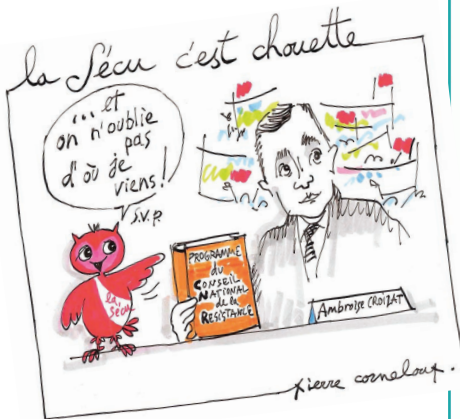 la Sécu c'est chouette
... et
on n'oublie
pas
d'où je
viens !
S.V.P.
la
sécu
PROGRAMME
du
CONSEIL
NATIONAL
de la
RESISTANCE
Ambroise CROIZAT
pierre corneloup.